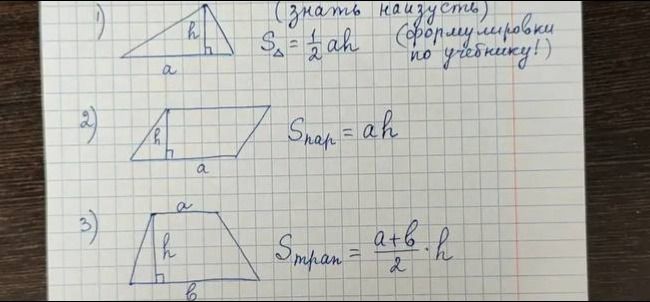 (знать наизусть)
1) h a S△ = 1/2 ah (формулировки
по учебнику!)
2) h a Sпар = ah
3) a h b Sтрап = a+b/2 · h